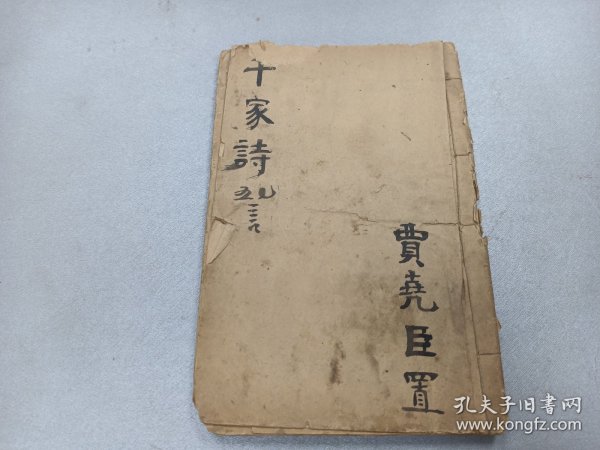 千家詩
賈堯臣置
孔夫子旧書网
www.kongfz.com